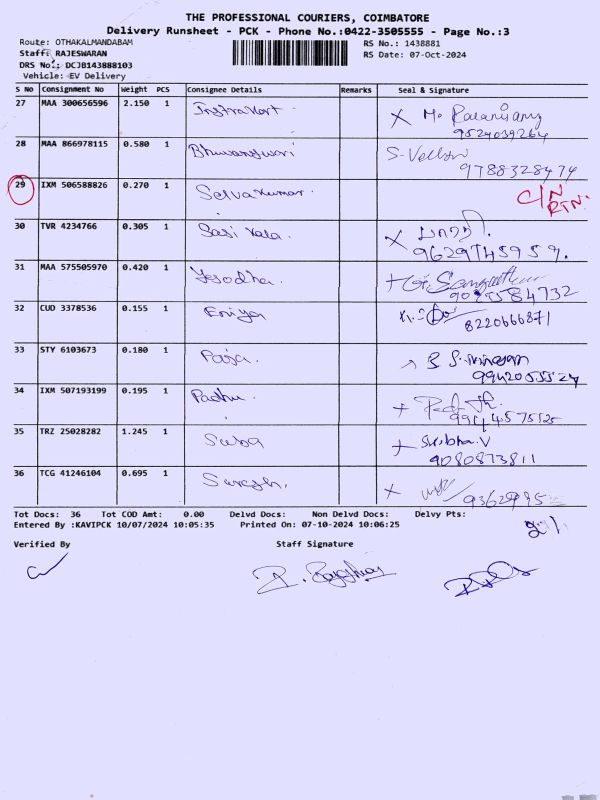 THE PROFESSIONAL COURIERS, COIMBATORE
Delivery Runsheet - PCK - Phone No.:0422-3505555 - Page No.:3
Route: OTHAKALMANDABAM RS No.: 1438881
Staff: RAJESWARAN RS Date: 07-Oct-2024
DRS No.: DCJB143888103
Vehicle: EV Delivery
S No Consignment No Weight PCS Consignee Details Remarks Seal & Signature
27 MAA 300656596 2.150 1 Instrakart
9524039264
28 MAA 866978115 0.580 1 Bhuvaneswari
9788328474
29 IXM 506588826 0.270 1 Selvakumar. C/N
RTN.
30 TVR 4234766 0.305 1 Sasi kala.
9629745959.
31 MAA 575505970 0.420 1 Yesodha.
584732
32 CUD 3378536 0.155 1 Eniya
8220666871
33 STY 6103673 0.180 1 Raja.
34 IXM 507193199 0.195 1 Padhu.
35 TRZ 25028282 1.245 1 Suba V
9080873811
36 TCG 41246104 0.695 1 Suresh.
Tot Docs: 36 Tot COD Amt: 0.00 Delvd Docs: Non Delvd Docs: Delvy Pts:
Entered By :KAVIPCK 10/07/2024 10:05:35 Printed On: 07-10-2024 10:06:25
Verified By Staff Signature